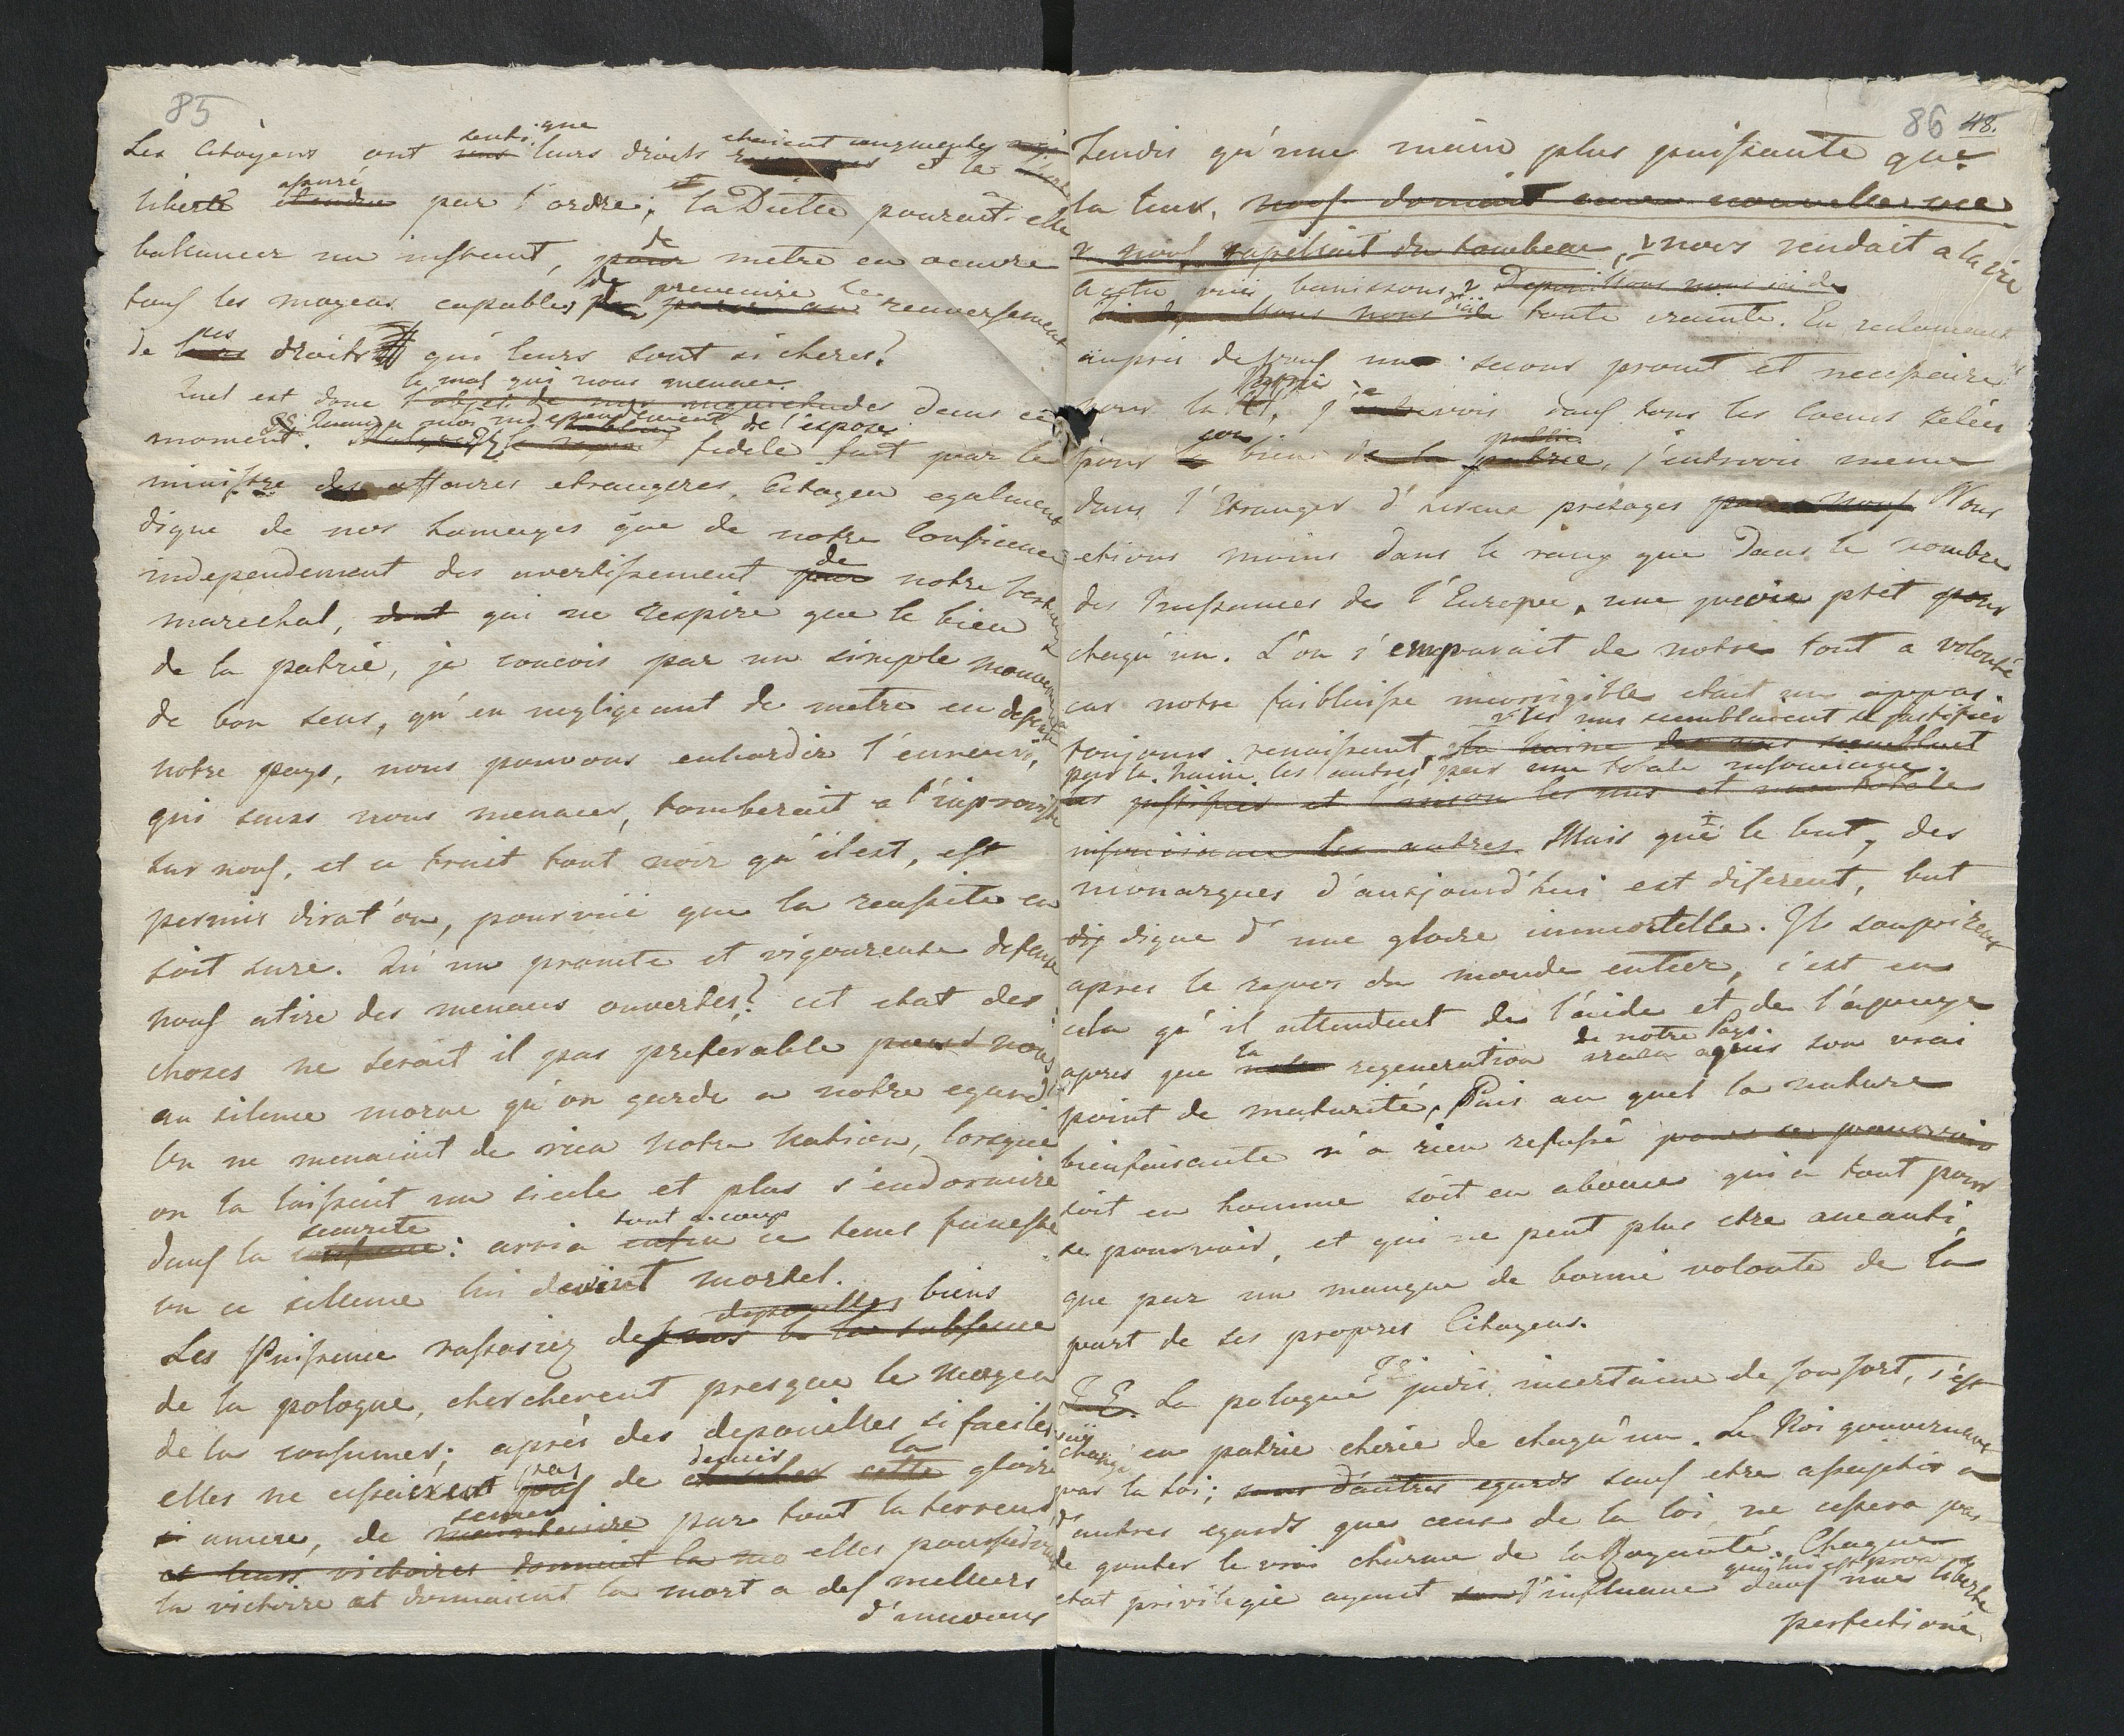 85
Les Citoyens ont senti que leurs droits etaient augmentés et la
liberté assuré par l'ordre; et la Diette pourait-elle
ballancer un instant, de metre en oeuvre
tous les moyens capables de prevenire le renversement
de ses droits qui leurs sont si cheres?
Quel est donc le mal qui nous menace dans ce
moment. independement de l'exposé fidele fait par le
ministre des affaires etrangeres, Citoyen egalment
digne de nos homages que de notre Confiance
independement des avertissement de notre
marechal, qui ne respire que le bien
de la patrie, je concois par un simple mouvement
de bon sens, qu'en negligeant de metre en defense
notre pays, nous pouvons enhardir l'ennemi,
qui sans nous menacer, tomberait a l'improviste
sur nous, et ce trait tout noir qu'il est, est
permis dirat'on, pourvüe que la reussite en
soit sure. Qu'une promte et vigoureuse defense
nous atire des menaces ouvertes? cet etat des
choses ne serait il pas preferable
au silence morne qu'on garde a notre egard
On ne menaçait de rien notre Nation, lorsque
on la laissait un siecle et plus s'endormire
dans la securite: arriva tout a coup ce tems funeste
ou ce silence lui devint mortel.
Les Puissance rassasiez des depouilles biens
de la pologne, chercherent presque le moyen
de la consumer; aprés des depouilles si faciles
elles ne cesserent pas de la gloire
amere, de semer par tout la terreur
et leurs victoires donnait la mo elles poursuivaient
la victoire et donnaient la mort a des milliers
d'innocens
86 48.
Tandis qu'une main plus puissante que
la leur, nous donnait une nouvelle vie
nous rapellait du tombeau, nous rendait a la vie
banissons toute crainte. En reclamant
auprès de vous un secours promt et necessaire
pour la Patrie, j'entrevois dans tous les coeurs zelées
pour son bien public, j'entrevoi meme
dans l'etranger d'heureux présages Nous
etions moins dans le rang que dans le nombre
des Puissances de l'Europe, une proie pret pour
chaqu'un. L'on s'emparait de notre tout a volonté
car notre faiblaisse incorrigible etait un appas
toujours renaissant, les uns semblaient se justifier
par la haine, les autres par une totale insouciance.
Mais que le but, des
monarques d'aujourd'hui est diferent, but
dig digne d'une gloire immortelle. Ils soupirent
apres le repos du monde entier, c'est en
cela qu'il attendent de l'aide et de l'apuye
apres que la regeneration de notre Pays aquis son vrai
point de maturité, Pais au quel la nature
bienfaisante n'a rien refusé
soit en homme soit en abonce qui a tout pour
se pourvoir, et qui ne peut plus etre aneanti,
que par un manque de bonne volonte de la
part de ses propres Citoyens.
La pologne jadis incertaine de son sort, s'est
changé en patrie cherie de chaqu'un. Le Roi gouvernant
par la loi; sans d'autres egards sans etre assujetir a
d'autres egards que ceux de la loi, ne cessera pas
de gouter le vrai charme de la Royauté. Chaque
etat privilegie ayant l'influence qui lui est propre dans une liberte
perfectioné.